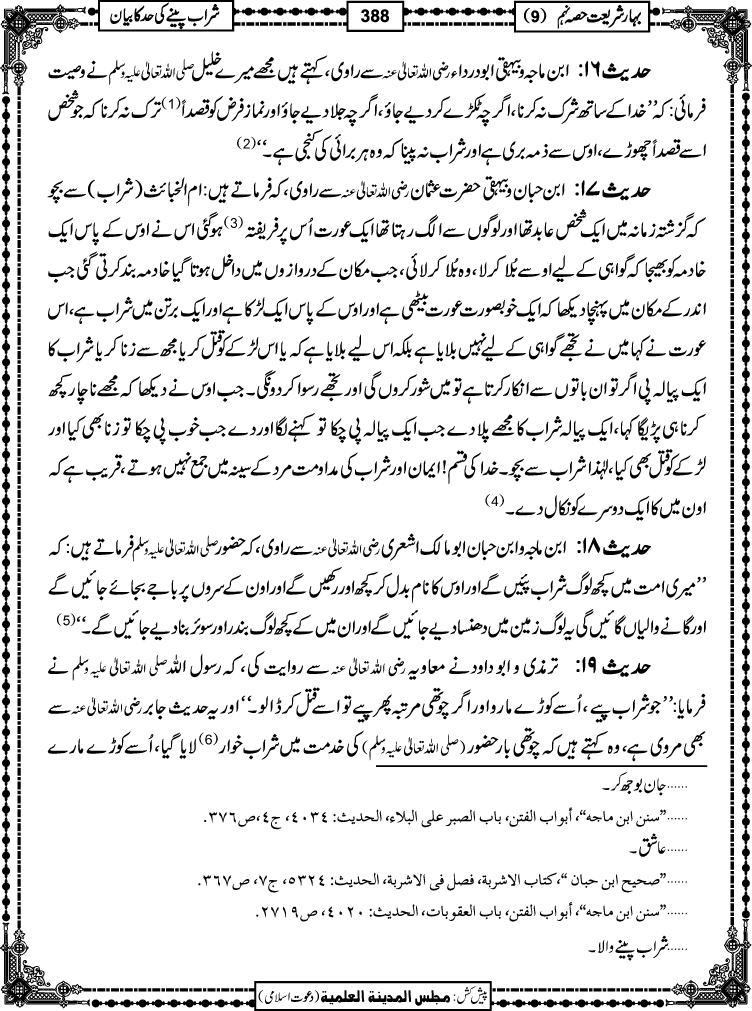 بہارِ شریعت حصہ نہم (9)
388
شراب پینے کی حد کا بیان
حدیث ۱۶: ابن ماجہ و بیہقی ابودرداء رضی اللہ تعالیٰ عنہ سے راوی، کہتے ہیں مجھے میرے خلیل صلی اللہ تعالیٰ علیہ وسلم نے وصیت
فرمائی: کہ ’’خدا کے ساتھ شرک نہ کرنا، اگرچہ ٹکڑے کر دیے جاؤ، اگرچہ جلا دیے جاؤ اور نماز فرض کو قصداً (1) ترک نہ کرنا کہ جو شخص
اسے قصداً چھوڑے، اوس سے ذمہ بری ہے اور شراب نہ پینا کہ وہ ہر برائی کی کنجی ہے۔‘‘ (2)
حدیث ۱۷: ابن حبان و بیہقی حضرت عثمان رضی اللہ تعالیٰ عنہ سے راوی، کہ فرماتے ہیں: ام الخبائث (شراب) سے بچو
کہ گزشتہ زمانہ میں ایک شخص عابد تھا اور لوگوں سے الگ رہتا تھا ایک عورت اُس پر فریفتہ (3) ہوگئی اس نے اوس کے پاس ایک
خادمہ کو بھیجا کہ گواہی کے لیے اوسے بُلا کر لا، وہ بُلا کر لائی، جب مکان کے دروازوں میں داخل ہوتا گیا خادمہ بند کرتی گئی جب
اندر کے مکان میں پہنچا دیکھا کہ ایک خوبصورت عورت بیٹھی ہے اور اوس کے پاس ایک لڑکا ہے اور ایک برتن میں شراب ہے، اس
عورت نے کہا میں نے تجھے گواہی کے لیے نہیں بلایا ہے بلکہ اس لیے بلایا ہے کہ یا اس لڑکے کو قتل کر یا مجھ سے زنا کر یا شراب کا
ایک پیالہ پی اگر تو ان باتوں سے انکار کرتا ہے تو میں شور کروں گی اور تجھے رسوا کر دونگی۔ جب اوس نے دیکھا کہ مجھے ناچار کچھ
کرنا ہی پڑیگا کہا، ایک پیالہ شراب کا مجھے پلا دے جب ایک پیالہ پی چکا تو کہنے لگا اور دے جب خوب پی چکا تو زنا بھی کیا اور
لڑکے کو قتل بھی کیا، لہٰذا شراب سے بچو۔ خدا کی قسم! ایمان اور شراب کی مداومت مرد کے سینہ میں جمع نہیں ہوتے، قریب ہے کہ
اون میں کا ایک دوسرے کو نکال دے۔ (4)
حدیث ۱۸: ابن ماجہ و ابن حبان ابو مالک اشعری رضی اللہ تعالیٰ عنہ سے راوی، کہ حضور صلی اللہ تعالیٰ علیہ وسلم فرماتے ہیں: کہ
’’میری امت میں کچھ لوگ شراب پئیں گے اور اوس کا نام بدل کر کچھ اور رکھیں گے اور اون کے سروں پر باجے بجائے جائیں گے
اور گانے والیاں گائیں گی یہ لوگ زمین میں دھنسا دیے جائیں گے اور ان میں کے کچھ لوگ بندر اور سوئر بنا دیے جائیں گے۔‘‘ (5)
حدیث ۱۹: ترمذی و ابو داود نے معاویہ رضی اللہ تعالیٰ عنہ سے روایت کی، کہ رسول اللہ صلی اللہ تعالیٰ علیہ وسلم نے
فرمایا: ’’جو شراب پیے، اُسے کوڑے مارو اور اگر چوتھی مرتبہ پھر پیے تو اسے قتل کر ڈالو۔‘‘ اور یہ حدیث جابر رضی اللہ تعالیٰ عنہ سے
بھی مروی ہے، وہ کہتے ہیں کہ چوتھی بار حضور (صلی اللہ تعالیٰ علیہ وسلم) کی خدمت میں شراب خوار (6) لایا گیا، اُسے کوڑے مارے
......جان بوجھ کر۔
......”سنن ابن ماجه“، أبواب الفتن، باب الصبر على البلاء، الحديث: ٤٠٣٤، ج٤، ص٣٧٦.
......عاشق۔
......”صحيح ابن حبان“، كتاب الاشربة، فصل فى الاشربة، الحديث: ٥٣٢٤، ج٧، ص٣٦٧.
......”سنن ابن ماجه“، أبواب الفتن، باب العقوبات، الحديث: ٤٠٢٠، ص٢٧١٩.
......شراب پینے والا۔
پیش کش: مجلس المدينة العلمية (دعوت اسلامی)